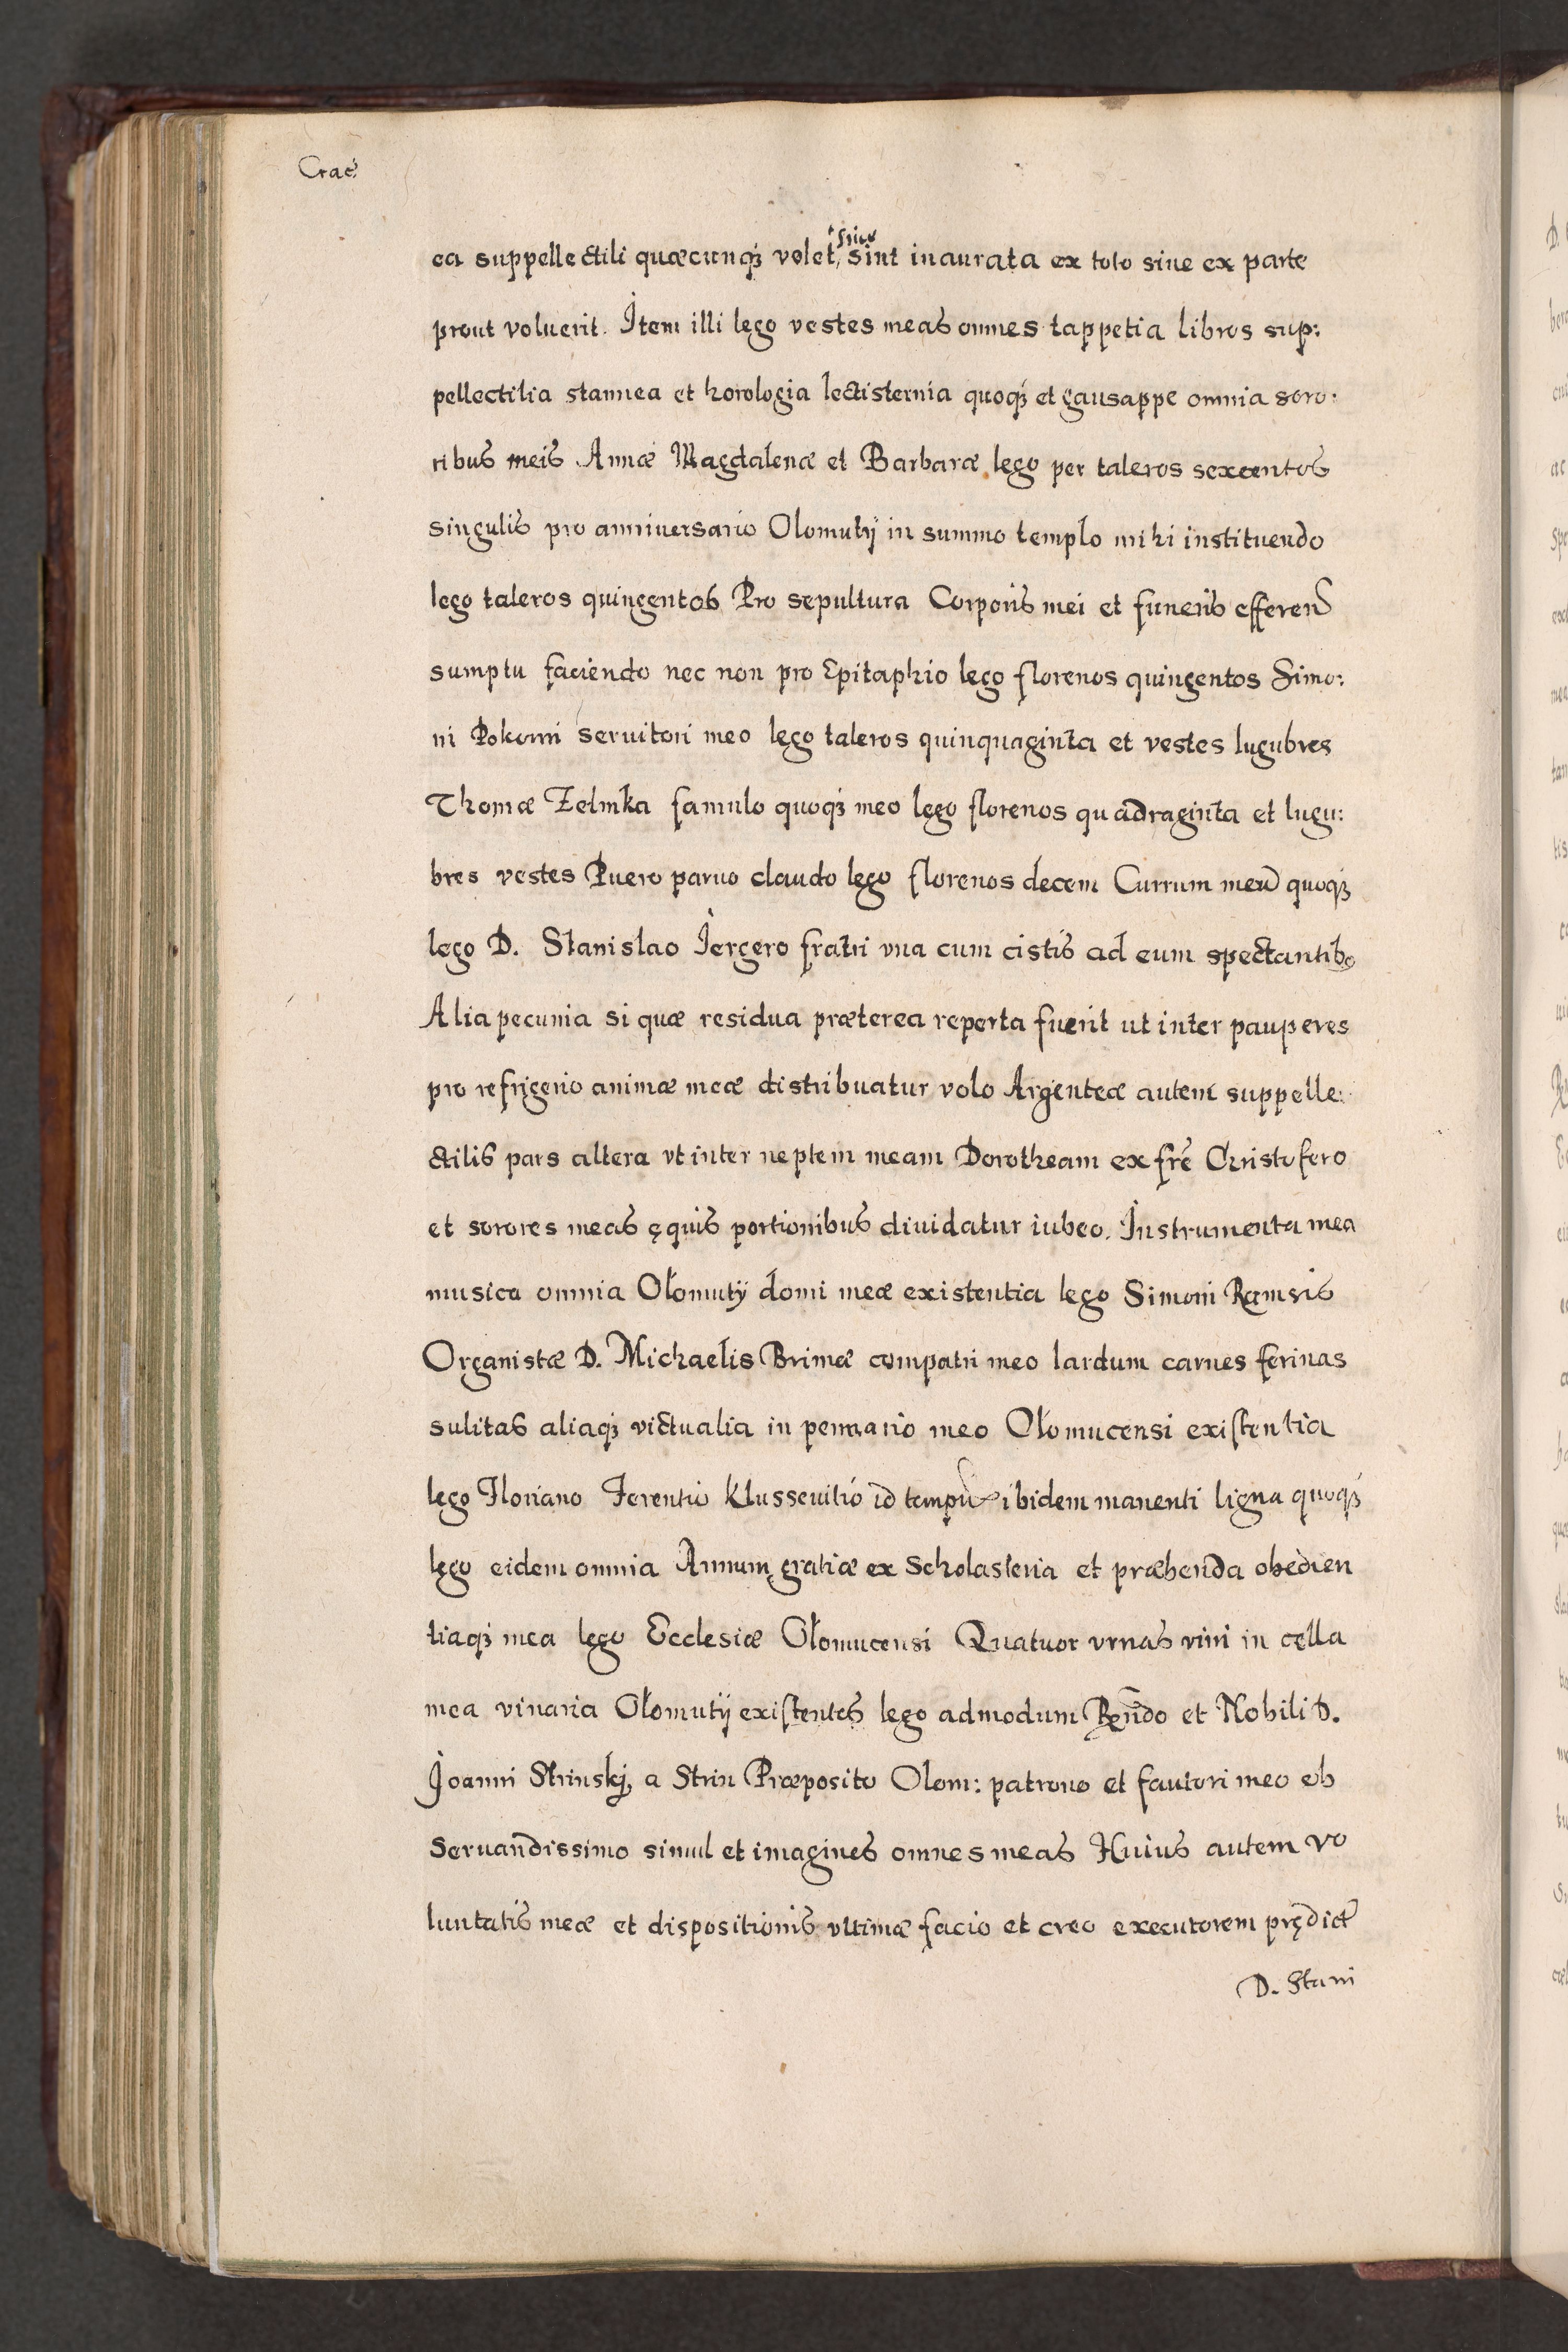 Crac:
ea suppellectili quæcunqȝ volet, siue sint inaurata ex toto siue ex parte
prout voluerit. Item illi lego vestes meas omnes tappetia libros sup:
pellectilia stannea et horologia lectisternia quoqȝ et gausappe omnia soro:
ribus meis Annæ Magdalenæ et Barbaræ lego per taleros sexcentos
singulis pro anniuersario Olomutij in summo templo mihi instituendo
lego taleros quingentos Pro sepultura Corporis mei et funeris efferend
sumptu faciendo nec non pro Epitaphio lego florenos quingentos Simo:
ni Pokorni seruitori meo lego taleros quinquaginta et vestes lugubres
Thomæ Zelinka famulo quoqȝ meo lego florenos quadraginta et lugu:
bres vestes Puero paruo claudo lego florenos decem Currum meũ quoqȝ
lego D. Stanislao Iergero fratri vna cum cistis ad eum spectantibꝫ
Alia pecunia si quæ residua præterea reperta fuerit ut inter pauperes
pro refrigerio animæ meæ distribuatur volo Argenteæ autem suppelle:
ctilis pars altera vt inter neptem meam Dorotheam ex frẽ Christofero
et sorores meas ęquis portionibus diuidatur iubeo. Instrumenta mea
musica omnia Olomutij domi meæ existentia lego Simoni Ramsis
Organistæ D. Michaelis Brimæ compatri meo lardum carnes ferinas
sulitas aliaqȝ victualia in pennario meo Olomucensi existentia
lego Floriano Ferentio Klusseuitio id tempũ ibidem manenti ligna quoqȝ
lego eidem omnia Annum gratiæ ex Scholasteria et præbenda obedien
tiaqȝ mea lego Ecclesiæ Olomucensi Quatuor vrnas vini in cella
mea vinaria Olomutij existentes lego admodum Rẽndo et Nobili D.
Joanni Strinskj, a Strin Præposito Olom: patrono et fautori meo ob
seruandissimo simul et imagines omnes meas Huius autem vo
luntatis meæ et dispositionis vltimæ facio et creo executorem prędict
D. Stani